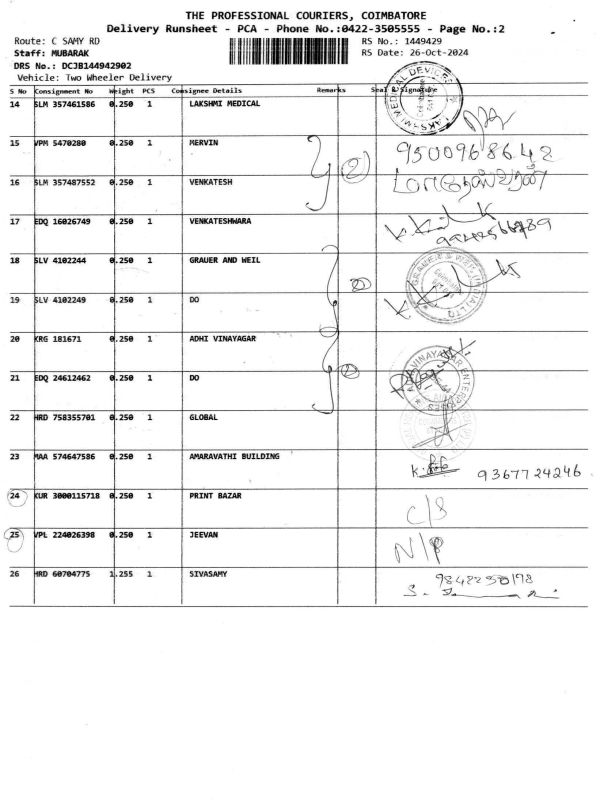 THE PROFESSIONAL COURIERS, COIMBATORE
Delivery Runsheet - PCA - Phone No.:0422-3505555 - Page No.:2
Route: C SAMY RD RS No.: 1449429
Staff: MUBARAK RS Date: 26-Oct-2024
DRS No.: DCJB144942902
Vehicle: Two Wheeler Delivery
S No Consignment No Weight PCS Consignee Details Remarks Seal & Signature
14 SLM 357461586 0.250 1 LAKSHMI MEDICAL
15 VPM 5470280 0.250 1 MERVIN 9500968642
16 SLM 357487552 0.250 1 VENKATESH
17 EDQ 16026749 0.250 1 VENKATESHWARA
18 SLV 4102244 0.250 1 GRAUER AND WEIL
19 SLV 4102249 0.250 1 DO
20 KRG 181671 0.250 1 ADHI VINAYAGAR
21 EDQ 24612462 0.250 1 DO
22 HRD 758355701 0.250 1 GLOBAL
23 MAA 574647586 0.250 1 AMARAVATHI BUILDING 9367724246
24 KUR 3000115718 0.250 1 PRINT BAZAR C/S
25 VPL 224026398 0.250 1 JEEVAN N/P
26 HRD 60704775 1.255 1 SIVASAMY